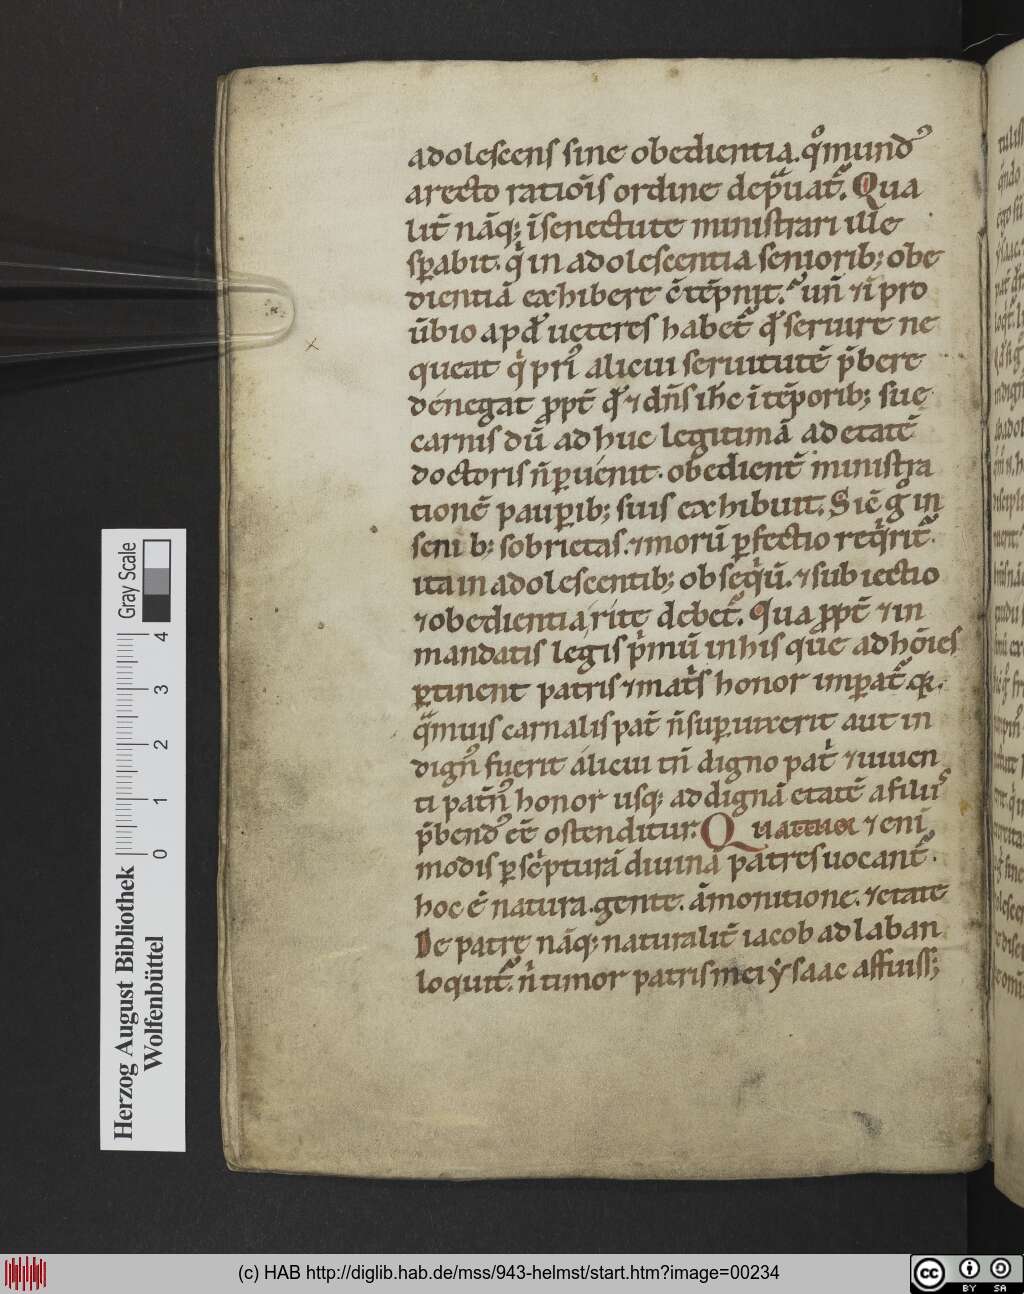 adolescens sine obedientia. qͦmundꝰ
a recto ratiōis ordine dep̄uat᷑. Qua
lit̄ nāq; īsenectute ministrari illi
sꝑabit. qͥ in adolescentia seniorib; obe
dientiā exhibere ētēpnit. un̄ ⁊ ī pro
ūbio apd̓ ueteres habet᷑ qd̓ seruire ne
queat qͥ priꝰ alicui seruitutē p̄bere
denegat ꝓpt̄ qd̓ ⁊ dn̄s ih̄c ī tēporib; sue
carnis dū adhuc legitimā ad etatē
doctoris n̄ ꝑuenit. obedient̄ ministra
tionē pauꝑib; suis exhibuit. Sic̄ g̊ in
senib; sobrietas. ⁊ morū ꝑfectio reqͥrit᷑.
ita in adolescentib; obseqͥū. ⁊ subiectio
⁊ obedientia rite debet᷑. Qua ꝓpt̄ ⁊ in
mandatis legis pͥmū in his que ad hōies
ꝑtinent patris ⁊ mat̄s honor imꝑat᷑. qꝛ.
qͣmuis carnalis pat̄ n̄ suꝑuixerit aut in
dignꝰ fuerit alicui tn̄ digno patͥ ⁊ uiuen
ti pat̄nꝰ honor usq; ad dignā etatē a filiis
p̄bendꝰ eē ostenditur. Quattuor ⁊ enī
modis ꝑ scͥpturā diuinā patres uocant᷑.
hoc ē natura. gente. āmonitione. ⁊ etate
De patre nāq; naturalit̄ iacob ad laban
loquit᷑. nͥ timor patris mei ẏsaac affuiss;
Herzog August Bibliothek
Wolfenbüttel
Gray Scale
0 1 2 3 4
(c) HAB http://diglib.hab.de/mss/943-helmst/start.htm?image=00234
cc BY SA